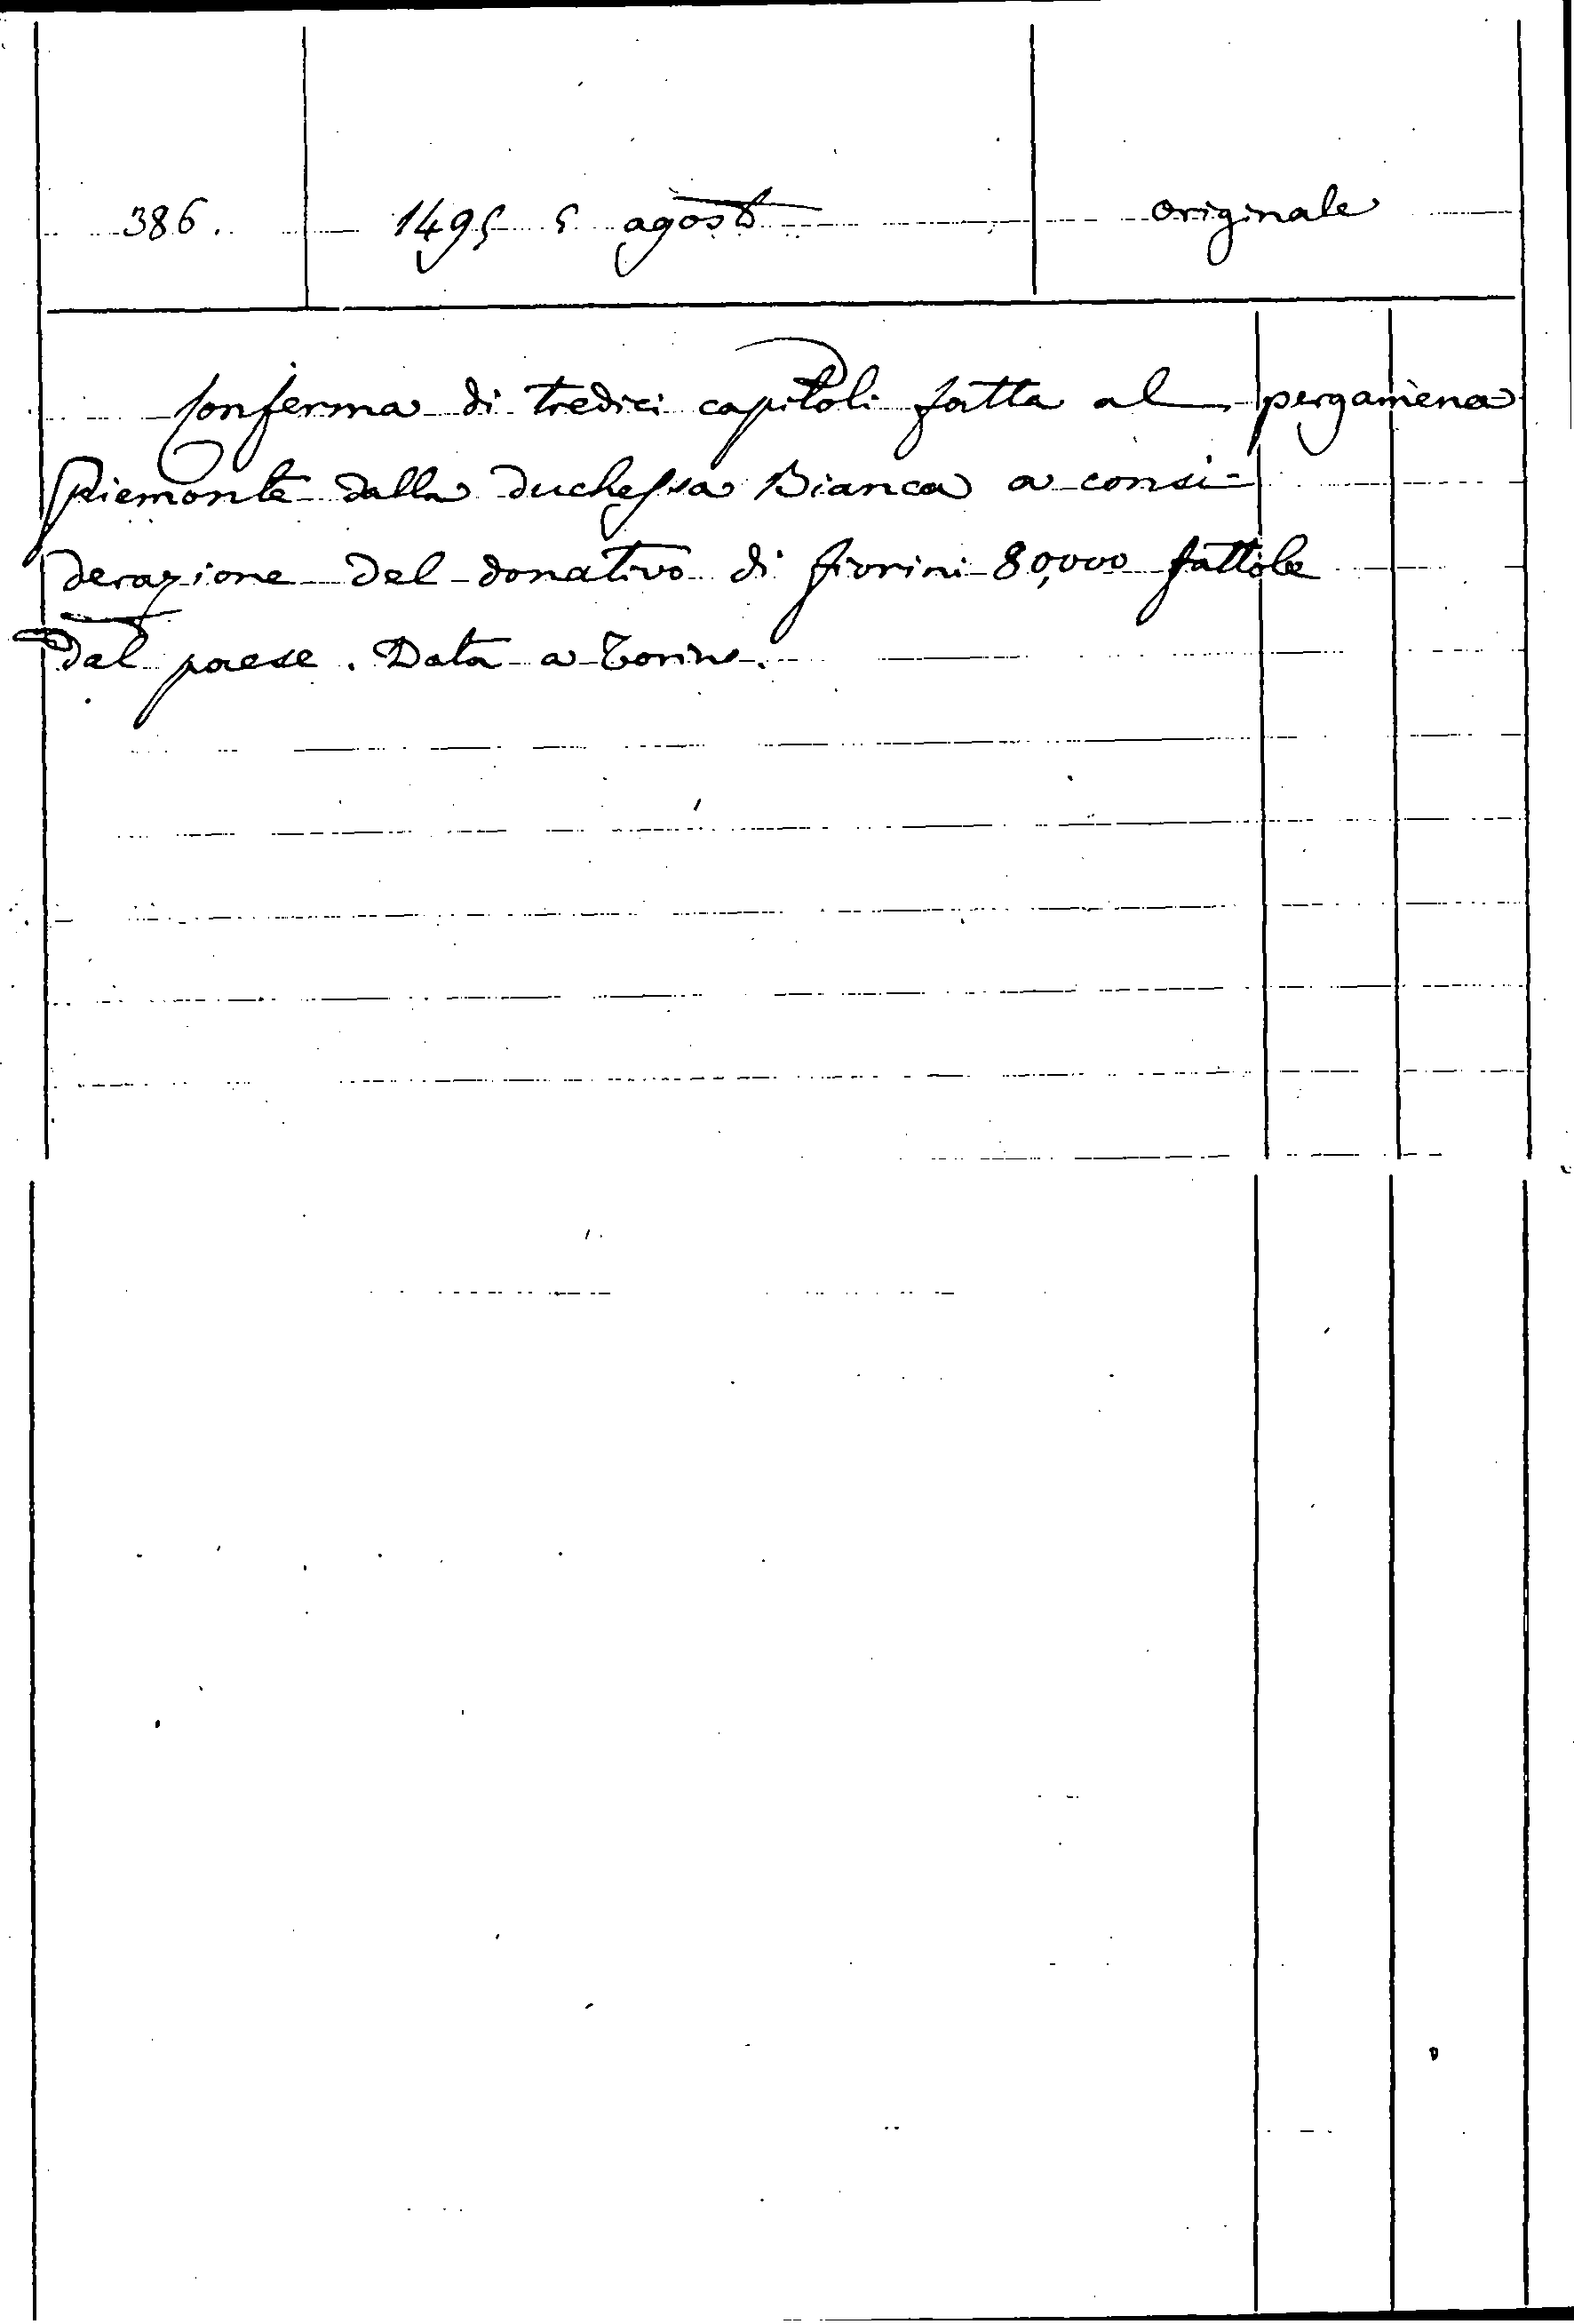 386.
1495 5 agosto
originale
Conferma di tredici capitoli fatta al
pergamena
Piemonte dalla duchessa Bianca a consi=
derazione del donativo di fiorini 80,000 fattole
dal paese. Data a Torino.